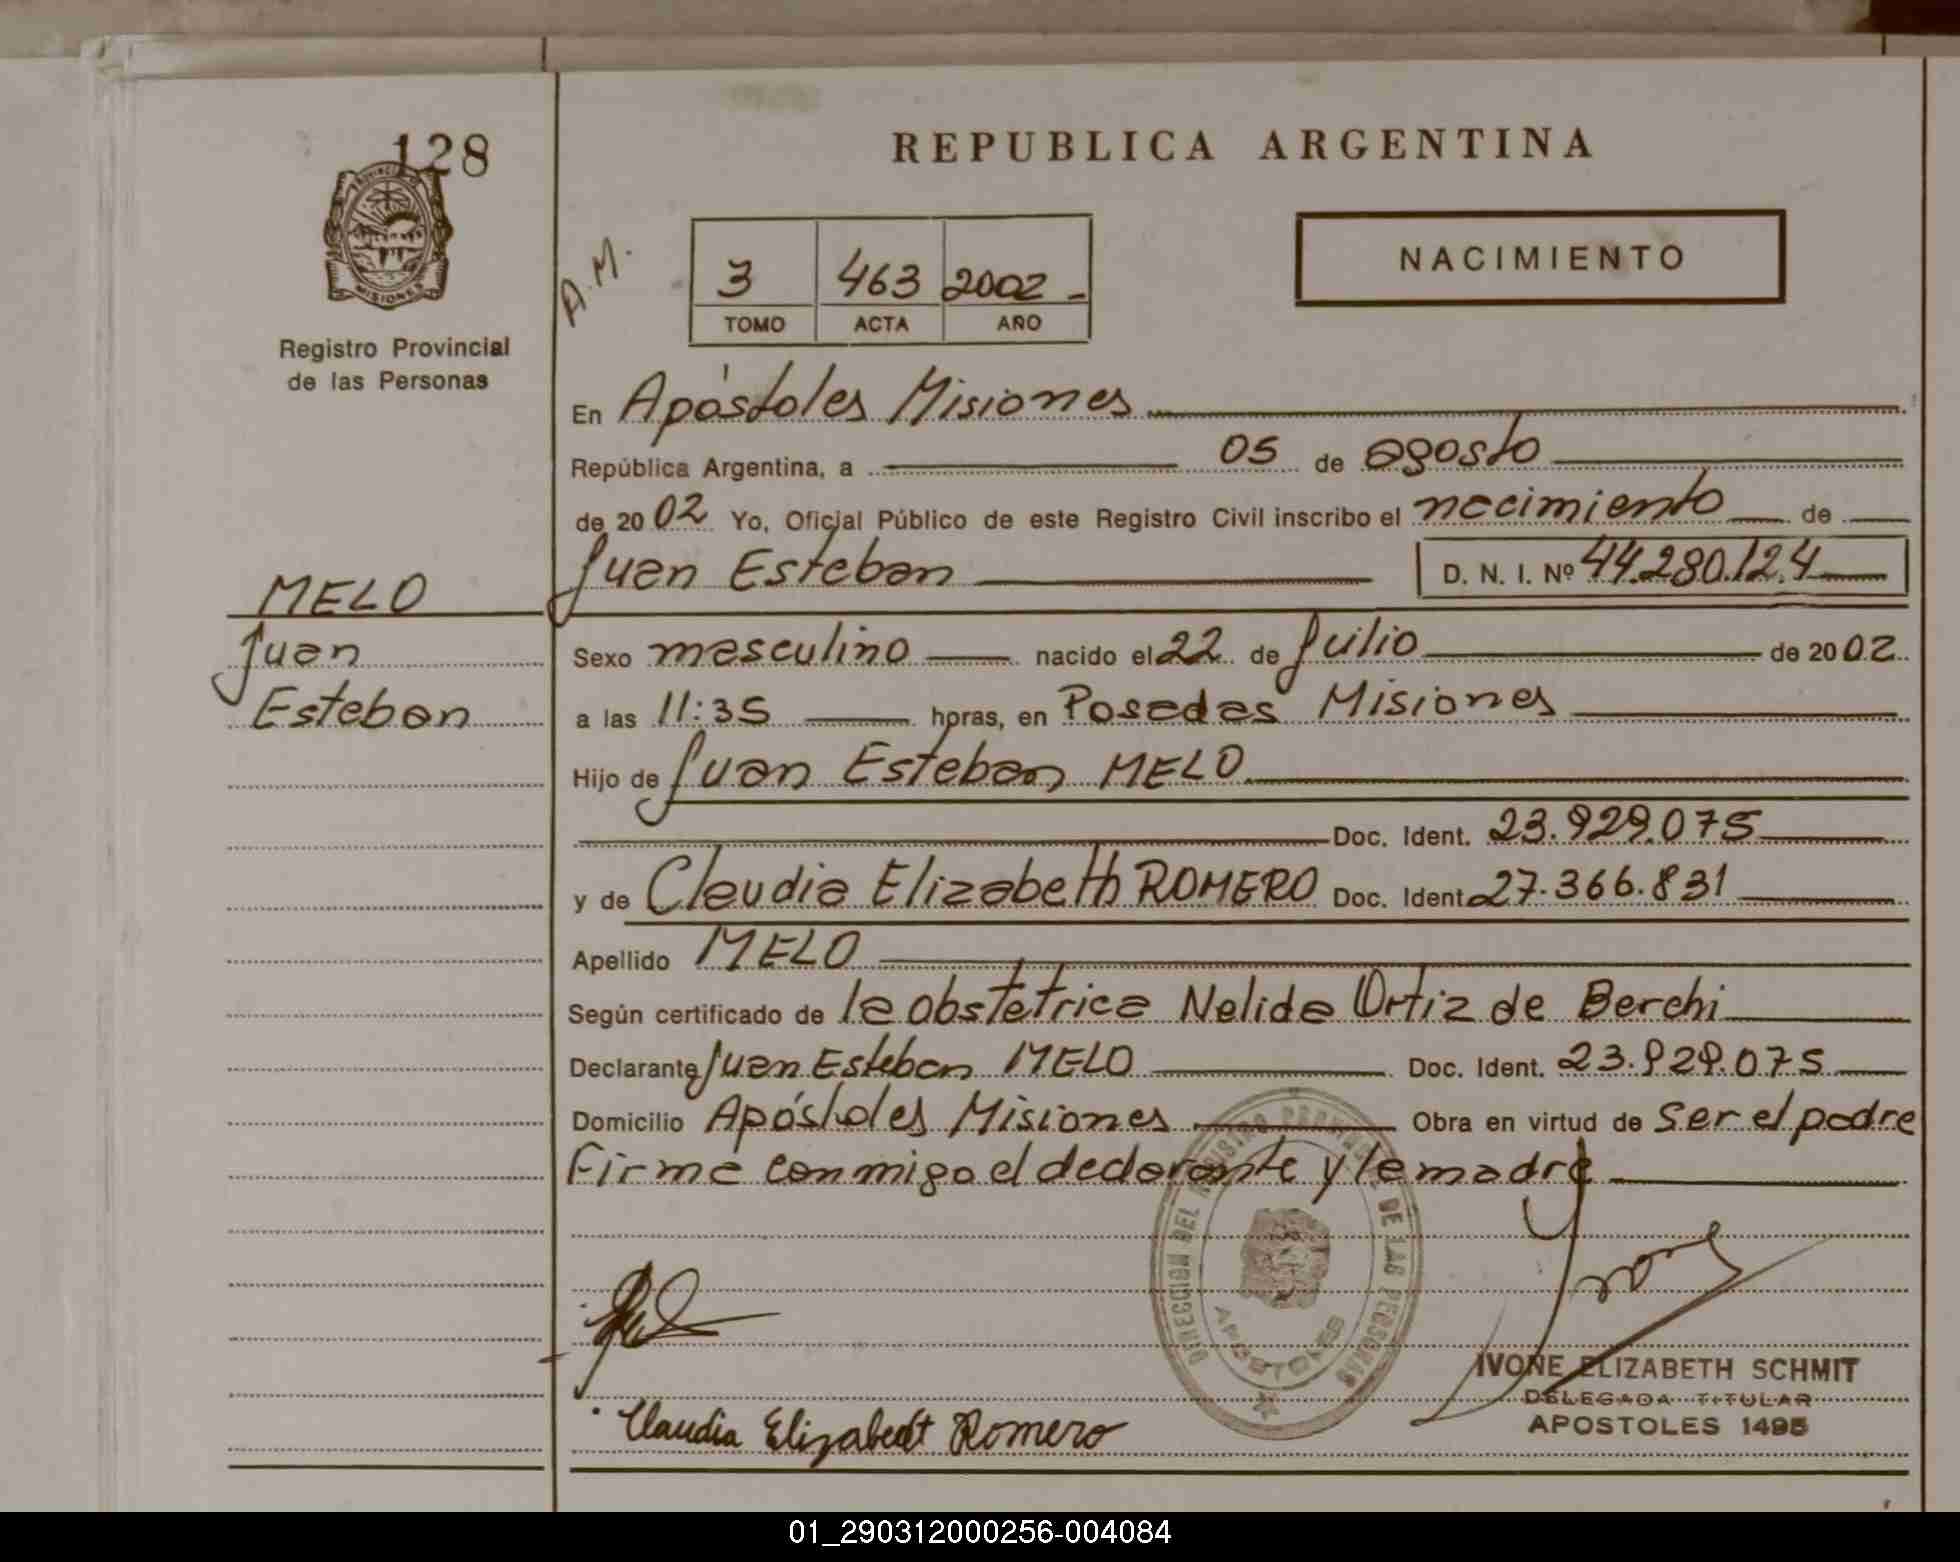 128
PROVINCIA DE
MISIONES
Registro Provincial
de las Personas
REPUBLICA ARGENTINA
A.M.
3 463 2002 -
TOMO ACTA AÑO
NACIMIENTO
En Apóstoles Misiones
República Argentina, a 05 de agosto
de 2002 Yo, Oficial Público de este Registro Civil inscribo el nacimiento de
Juan Esteban D. N. I. Nº 44.280.124
MELO
Juan
Esteban
Sexo masculino nacido el 22 de Julio de 2002
a las 11:35 horas, en Posadas Misiones
Hijo de Juan Esteban MELO
Doc. Ident. 23.929.075
y de Claudia Elizabeth ROMERO Doc. Ident. 27.366.831
Apellido MELO
Según certificado de la obstetrica Nelida Ortiz de Berchi
Declarante Juan Esteban MELO Doc. Ident. 23.929.075
Domicilio Apóstoles Misiones Obra en virtud de ser el padre
Firma conmigo el declarante y la madre
DIRECCION DEL REGISTRO PROVINCIAL DE LAS PERSONAS
APOSTOLES
IVONE ELIZABETH SCHMIT
DELEGADA TITULAR
APOSTOLES 1495
Claudia Elizabeth Romero
01_290312000256-004084